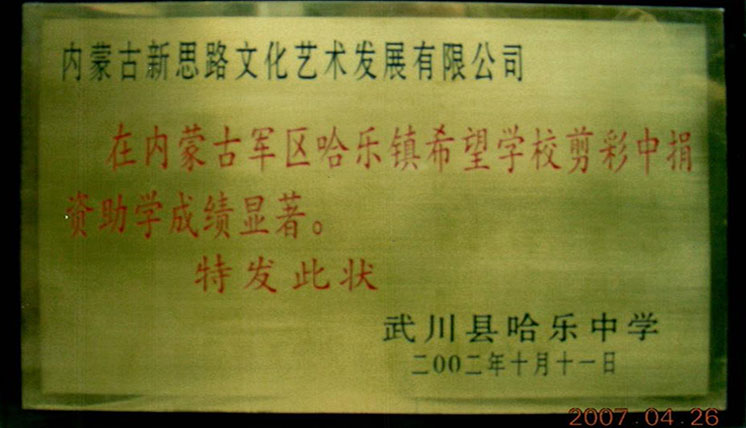 内蒙古新思路文化艺术发展有限公司
在内蒙古军区哈乐镇希望学校剪彩中捐
资助学成绩显著。
特发此状
武川县哈乐中学
二00二年十月十一日
2007.04.26